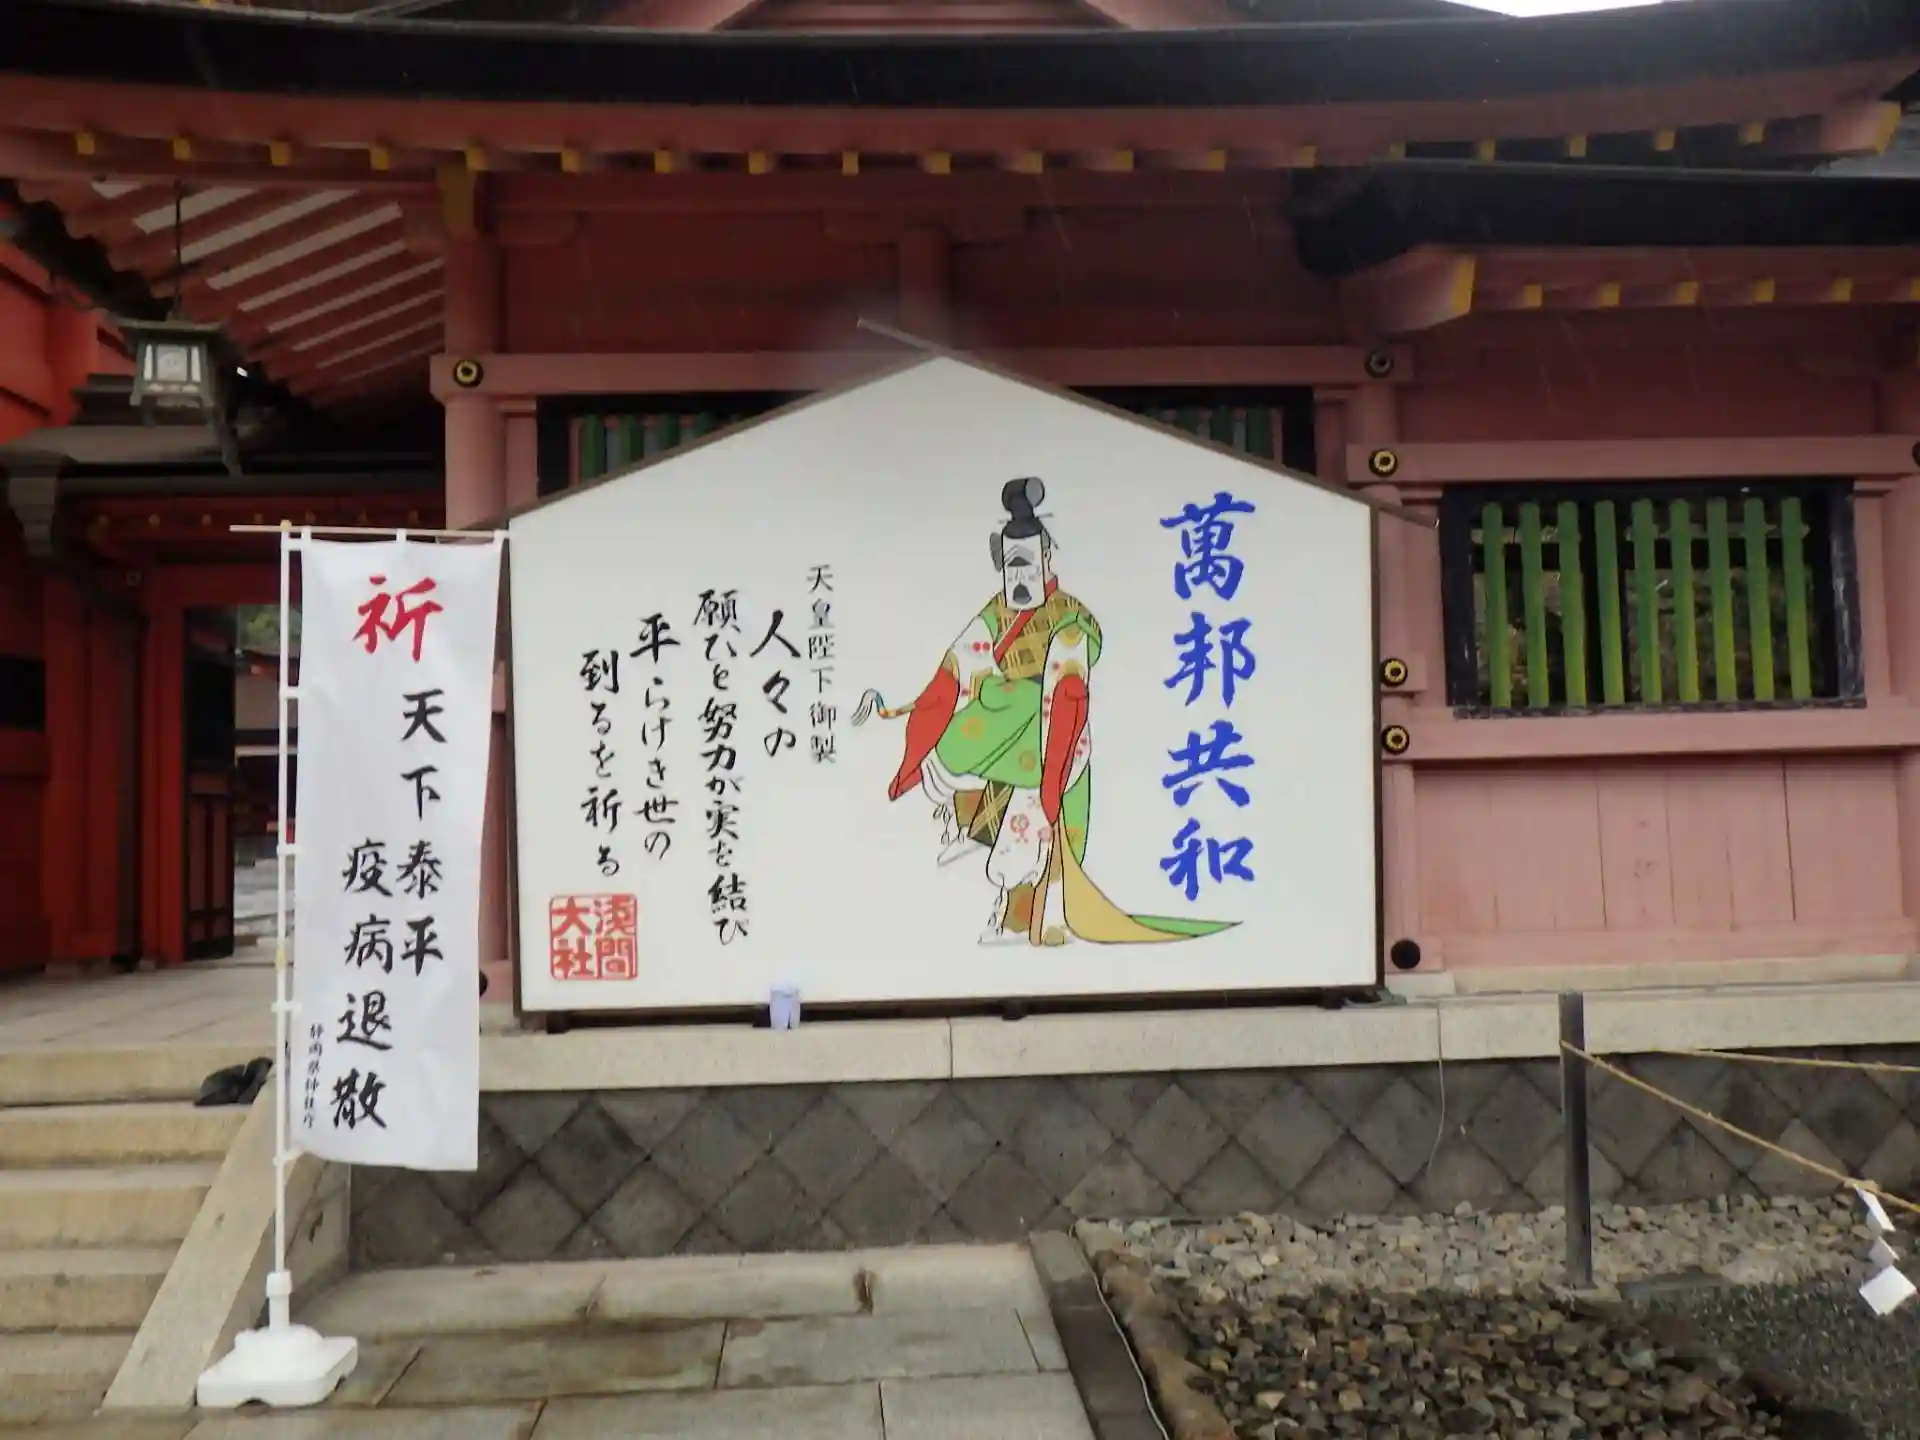 萬邦共和
天皇陛下御製
人々の
願ひと努力が実を結び
平らけき世の
到るを祈る
浅間
大社
祈
天下泰平
疫病退散
静岡県神社庁